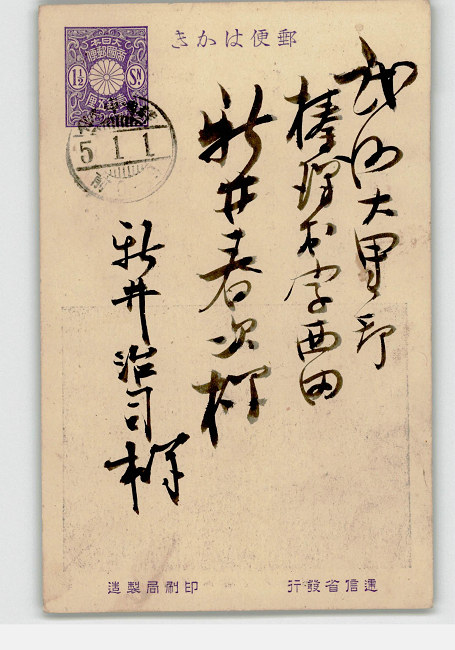 郵便はかき
大日本
帝國郵便
1½ SN
壹錢五厘
5 1 1
武州大里郡
榛澤村字西田
新井春次様
新井治司様
遞信省發行
印刷局製造